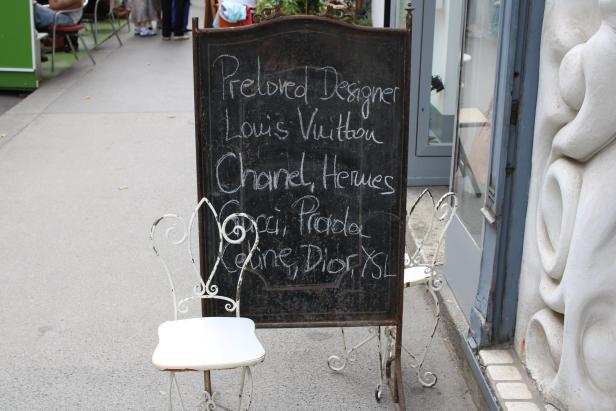 Preloved Designer
Louis Vuitton
Chanel, Hermes
Gucci, Prada
Celine, Dior, YSL